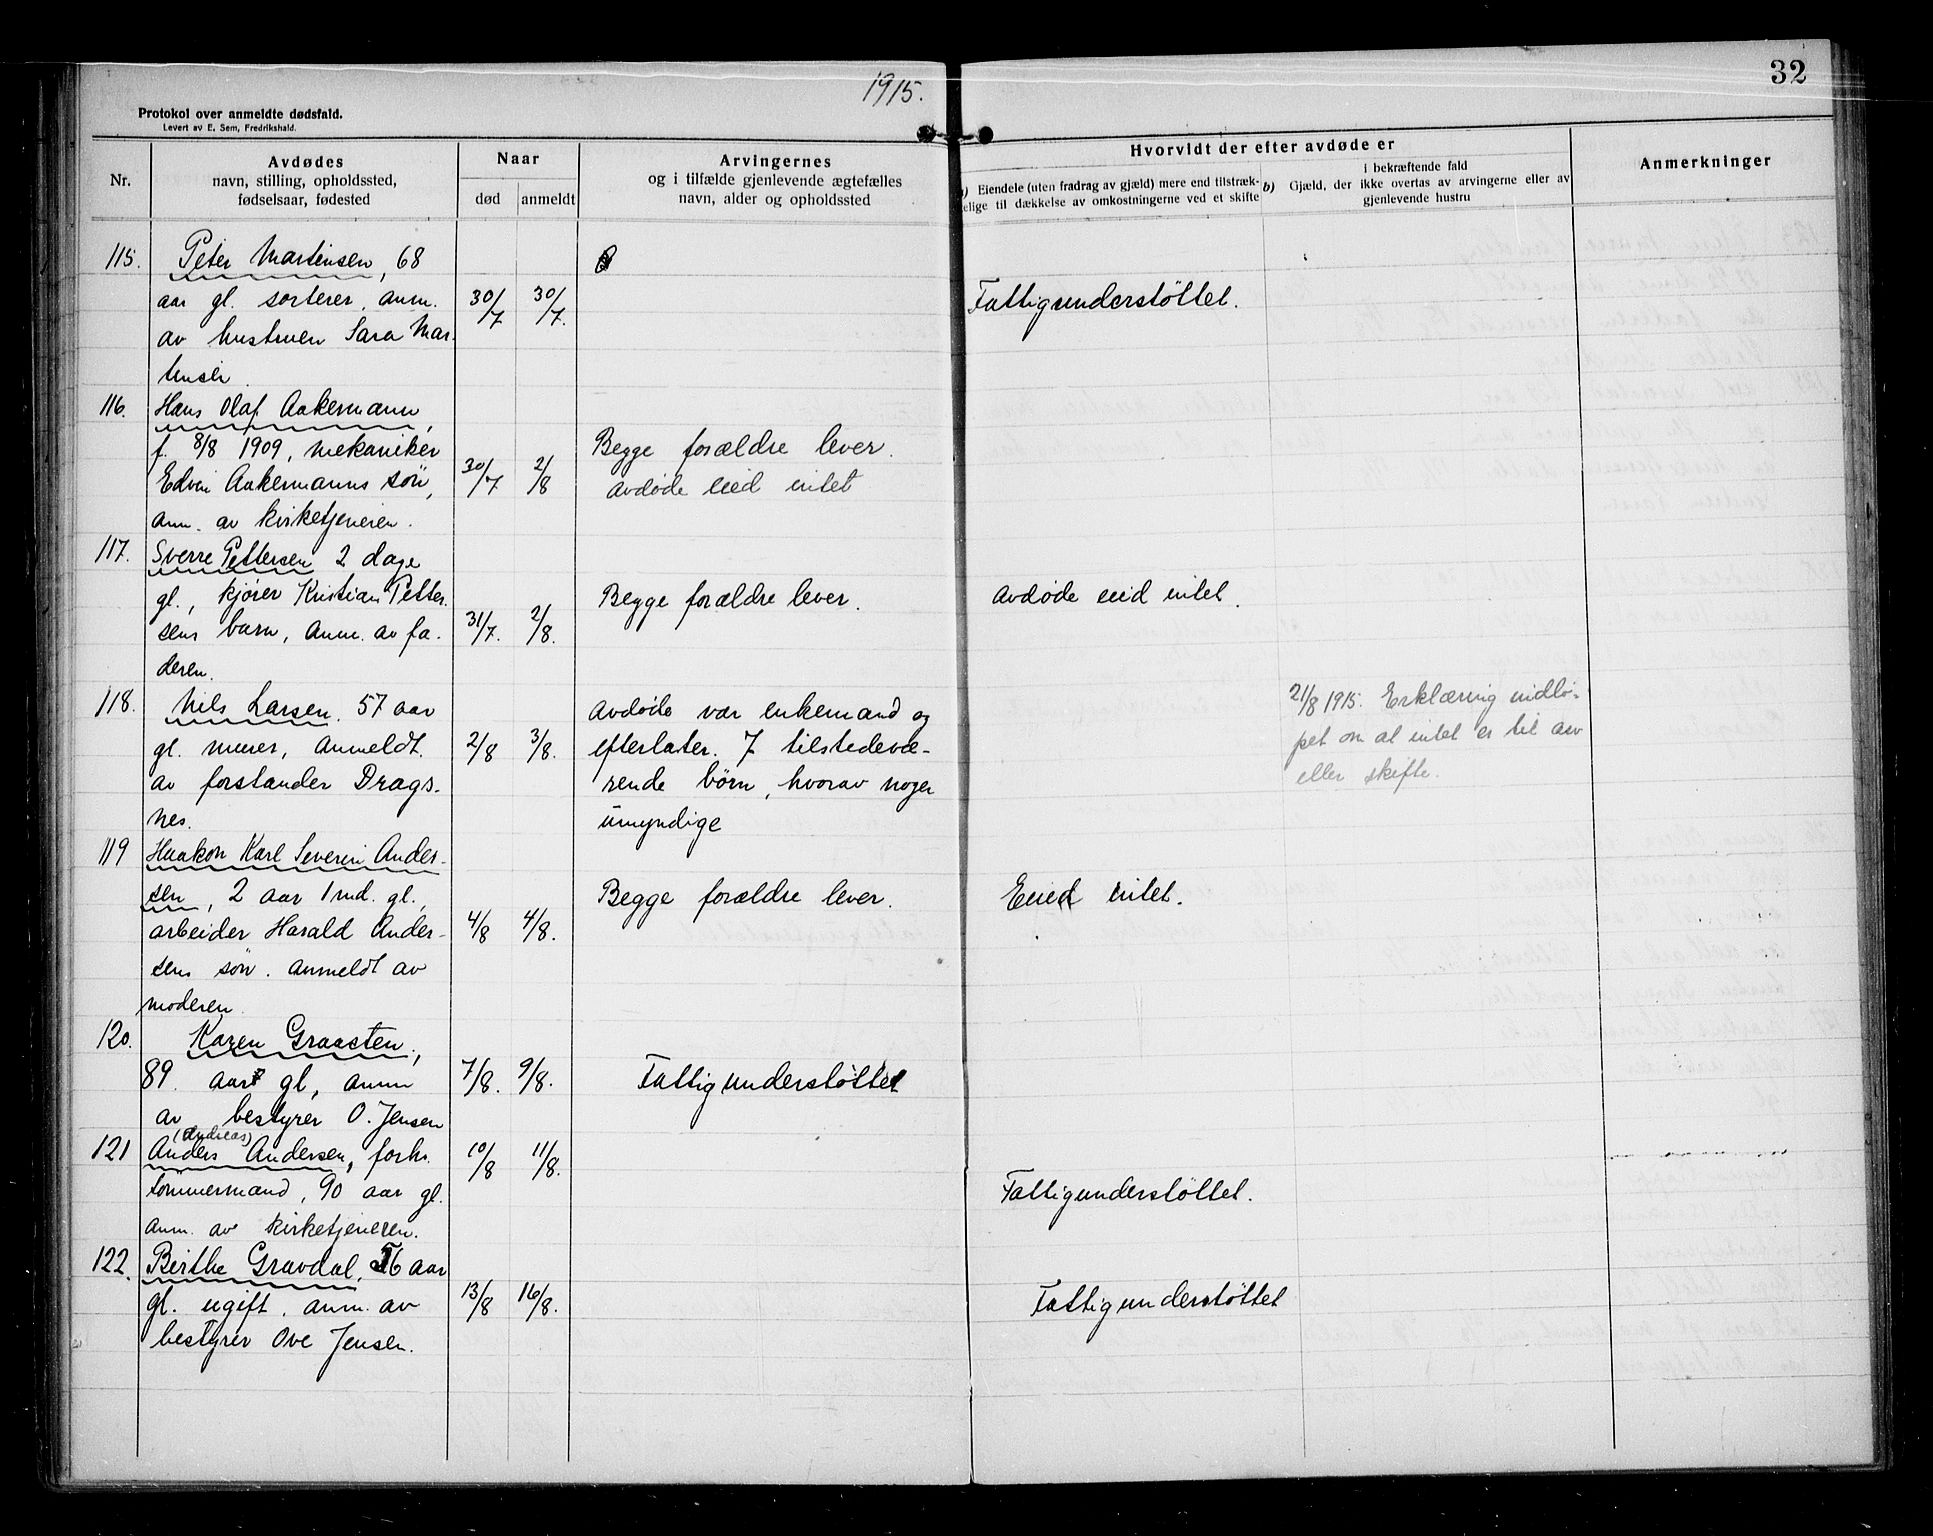 1915.
32
Protokol over anmeldte dødsfald.
Levert av E. Sem, Fredrikshald.
Nr.
Avdødes
navn, stilling, opholdssted,
fødselsaar, fødested
Naar
død
anmeldt
Arvingernes
og i tilfælde gjenlevende ægtefælles
navn, alder og opholdssted
Hvorvidt der efter avdøde er
a) Eiendele (uten fradrag av gjæld) mere end tilstræk-
kelige til dækkelse av omkostningerne ved et skifte
i bekræftende fald
b) Gjæld, der ikke overtas av arvingerne eller av
gjenlevende hustru
Anmerkninger
115. Peter Martinsen, 68
aar gl. sorterer, anm. 30/7 30/7. Fattigunderstøttet.
av hustruen Sara Mar-
tinsen
116. Hans Olaf Aakermann,
f. 8/8 1909, mekaniker Begge forældre lever.
Edvin Aakermanns søn, 30/7 2/8 Avdøde eied intet
anm. av kirketjeneren.
117. Sverre Pettersen 2 dage
gl., kjører Kristian Petter- Begge forældre lever. Avdøde eied intet.
sens barn, anm. av fa- 31/7. 2/8.
deren.
118. Nils Larsen. 57 aar Avdøde var enkemand og 21/8 1915. Erklæring indlø-
gl. murer, Anmeldt 2/8 3/8. efterlater. 7 tilstedevæ- pet om at intet er til arv
av forstander Drags- rende børn, hvorav noger eller skifte.
nes. umyndige
119 Haakon Karl Severin Ander-
sen, 2 aar 1 md. gl., Begge forældre lever. Eied intet.
arbeider Harald Ander- 4/8 4/8.
sens søn. Anmeldt av
moderen.
120. Karen Graasten,
89 aar gl, anm 7/8. 9/8. Fattigunderstøttet
av bestyrer O. Jensen
(Andreas)
121 Anders Andersen, forh. 10/8 11/8.
tømmermand, 90 aar gl. Fattigunderstøttet.
anm. av kirketjeneren.
122. Birthe Gravdal, 56 aar
gl. ugift. anm. av 13/8 16/8. Fattigunderstøttet
bestyrer Ove Jensen.